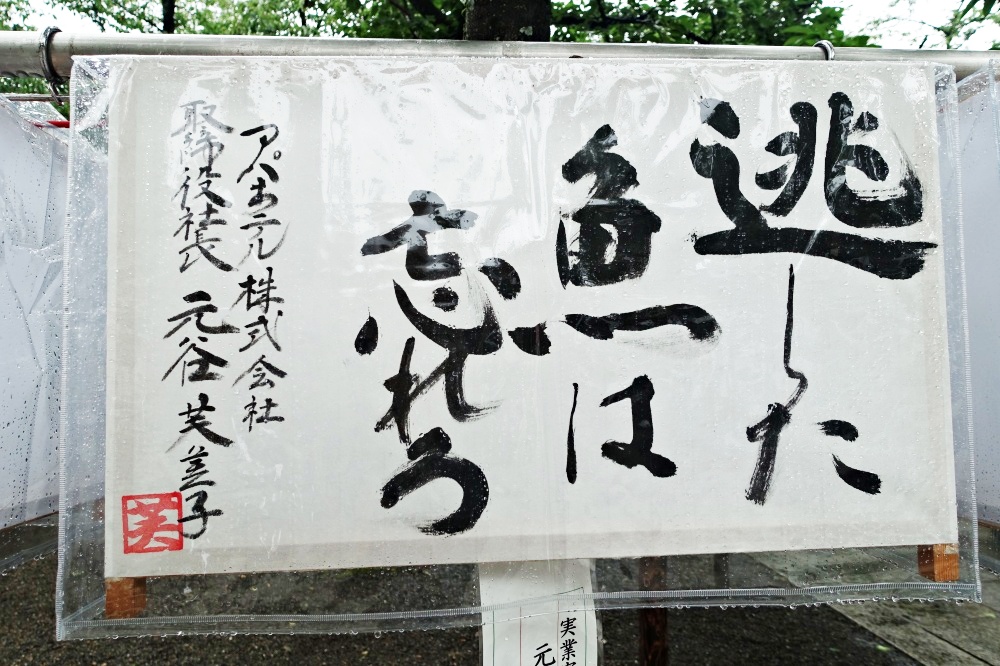 逃した
魚は
忘れろ
アパホテル株式会社
取締役社長 元谷芙美子
芙
実業
元